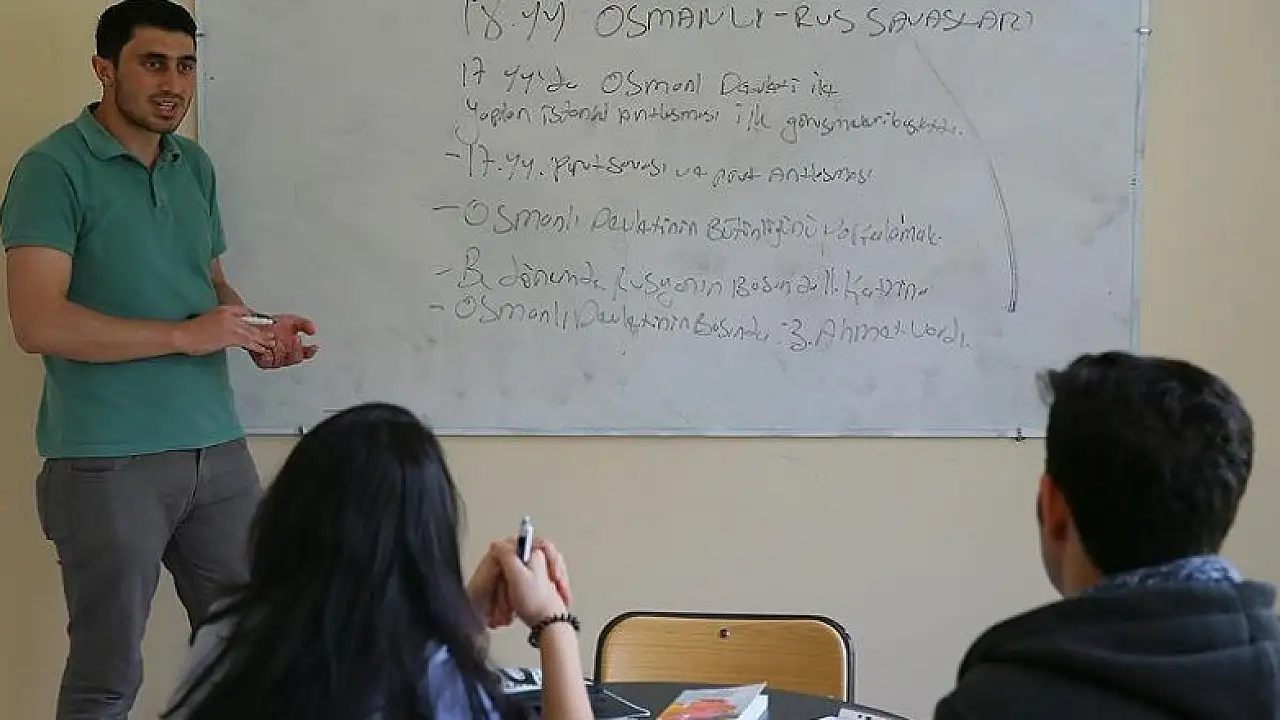 18.yy OSMANLI-RUS SAVAŞLARI
17 yy'da Osmanl Devleti ile
yapılan İstanbul Antlaşması ilk görüşmeleri başlattı.
-17.yy. prut savaşı ve prut Antlaşması
-Osmanlı Devletinin Bütünlüğünü
-B. dönemde Rusyanın Başında II. Katerina
-Osmanlı Devletinin Başında 3. Ahmet vardı.